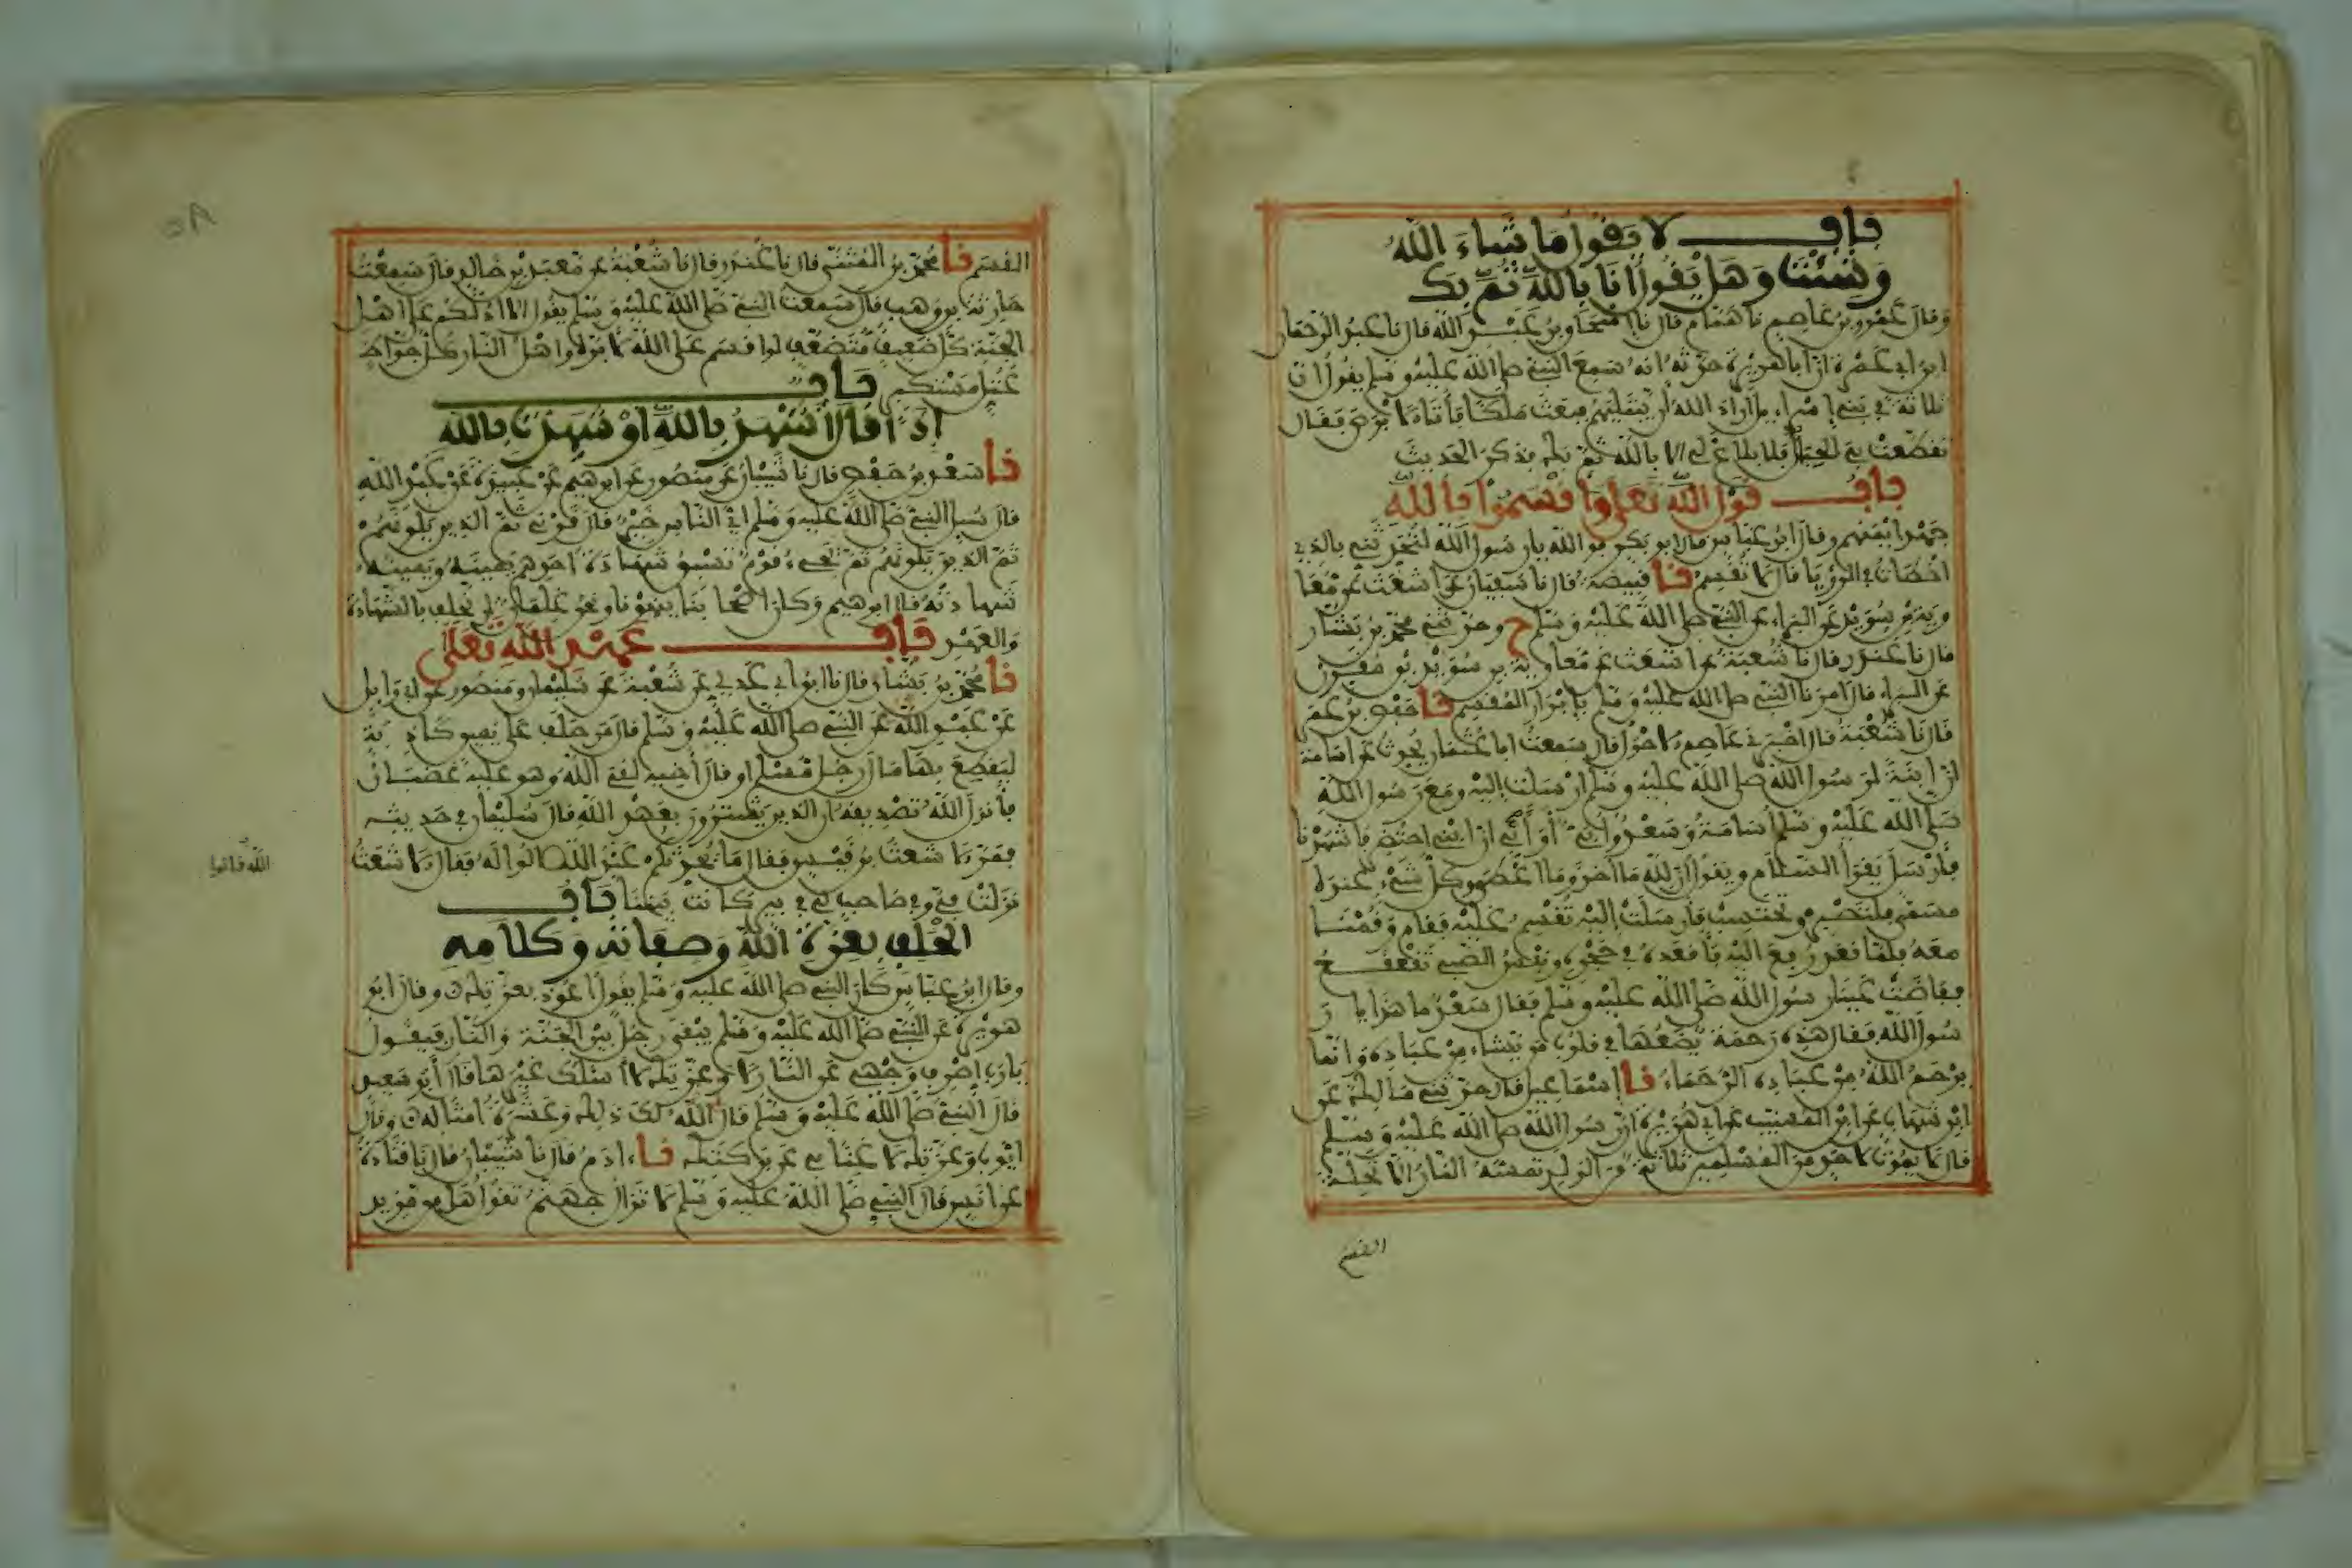 باب لا يقول ما شاء الله
وشئت وهل يقول انا بالله ثم بك
وقال عمرو بن عاصم نا همام قال نا اسحاق بن عبد الله قال نا عبد الرحمان
ابن ابي عمرة ان ابا هريرة حدثه انه سمع النبي صلى الله عليه وسلم يقول ان
ثلاثة في بني اسراءيل اراد الله ان يبتليهم فبعث ملكا فأتى الابرص فقال
تقطعت بي الحبال فلا بلاغ لي الا بالله ثم بك فذكر الحديث
باب قول الله تعلى واقسموا بالله
جهد ايمنهم وقال ابن عباس قال ابو بكر فو الله يا رسول الله لتحدثني بالذي
اخطات في الرؤيا قال لا تقسم نا قبيصة قال نا سفيان عن اشعث عن معا
وية بن سويد عن البراء عن النبي صلى الله عليه وسلم ح وحدثني محمد بن بشار
قال نا غندر قال نا شعبة عن اشعث عن معاوية بن سويد بن مقرن
عن البراء قال امرنا النبي صلى الله عليه وسلم بإبرار المقسم نا حفص بن عمر
قال نا شعبة قال اخبرني عاصم الاحول قال سمعت ابا عثمان يحدث عن اسامة
ان ابنة لرسول الله صلى الله عليه وسلم ارسلت اليه ومع رسول الله
صلى الله عليه وسلم أسامة وسعد وأبي أو أبي ان ابني احتضر فاشهدنا
فأرسل يقرأ السلام ويقول ان لله ما اخذ وما اعطى وكل شيء عنده
مسمى فلتصبر وتحتسب فأرسلت اليه تقسم عليه فقام وقمنا
معه فلما قعد رفع اليه فأقعده في حجره ونفس الصبي تقعقع
ففاضت عينا رسول الله صلى الله عليه وسلم فقال سعد ما هذا يا ر
سول الله فقال هذه رحمة يضعها في قلوب من يشاء من عباده وانما
يرحم الله من عباده الرحماء نا إسماعيل قال حدثني مالك عن
ابن شهاب عن ابن المسيب عن ابي هريرة ان رسول الله صلى الله عليه وسلم
قال لا يموت لاحد من المسلمين ثلاثة من الولد تمسه النار الا تحلة
القسم
٥٨
القسم نا محمد بن المثنى قال نا غندر قال نا شعبة عن معبد بن خالد قال سمعت
حارثة بن وهب قال سمعت النبي صلى الله عليه وسلم يقول الا ادلكم على اهل
الجنة كل ضعيف متضعف لو اقسم على الله لابره واهل النار كل جواظ
عتل مستكبر باب
إذا قال أشهد بالله أو شهدت بالله
نا سعد بن حفص قال نا شيبان عن منصور عن ابرهيم عن عبيدة عن عبد الله
قال سيل النبي صلى الله عليه وسلم اي الناس خير قال قرني ثم الذين يلونهم
ثم الذين يلونهم ثم يجيء قوم تسبق شهادة احدهم يمينه ويمينه
شهادته قال ابرهيم وكان اصحابنا ينهونا ونحن غلمان ان نحلف بالشهادة
والعهد باب عهد الله تعلى
نا محمد بن بشار قال نا ابن ابي عدي عن شعبة عن سليمان ومنصور عن ابي وايل
عن عبد الله عن النبي صلى الله عليه وسلم قال من حلف على يمين كاذبة
ليقطع بها مال رجل مسلم او قال أخيه لقي الله وهو عليه غضبان
فأنزل الله تصديقه ان الذين يشترون بعهد الله قال سليمان في حديثه
فمر الاشعث بن قيس فقال ما يحدثكم عبد الله قالوا له فقال الاشعث
نزلت في وفي صاحب لي في بير كانت بيننا باب
الحلف بعزة الله وصفاته وكلامه
وقال ابن عباس كان النبي صلى الله عليه وسلم يقول اعوذ بعزتك وقال ابو
هريرة عن النبي صلى الله عليه وسلم يبقى رجل بين الجنة والنار فيقول
يا رب اصرف وجهي عن النار لا وعزتك لا أسلك غيرها قال أبو سعيد
قال النبي صلى الله عليه وسلم قال الله لك ذلك وعشرة امثاله وقال
ايوب وعزتك لا غنا بي عن بركتك نا ادم قال نا شيبان قال نا قتادة
عن انس قال النبي صلى الله عليه وسلم لا تزال جهنم تقول هل من مزيد
الله قالوا